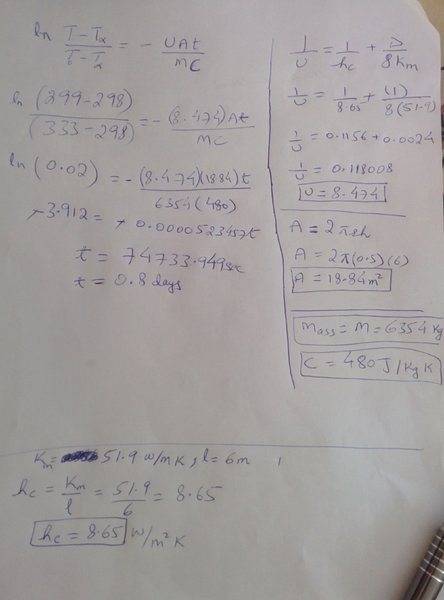 ln (T - Tα)/(T - Tα) = - UAt/MC
ln (299-298)/(333-298) = - (8.474)At/MC
ln (0.02) = - (8.474)(1884)t/6354(480)
-3.912 = - 0.0000523457t
t = 74733.949sec
t = 0.8 days
1/U = 1/hc + D/8Km
1/U = 1/8.65 + (1)/8(51.9)
1/U = 0.1156 + 0.0024
1/U = 0.118008
U = 8.474
A = 2πrh
A = 2π(0.5)(6)
A = 18.84m²
Mass = M = 6354 Kg
C = 480 J/Kg K
Km = 51.9 W/mK, l = 6m
hc = Km/l = 51.9/6 = 8.65
hc = 8.65 W/m²K